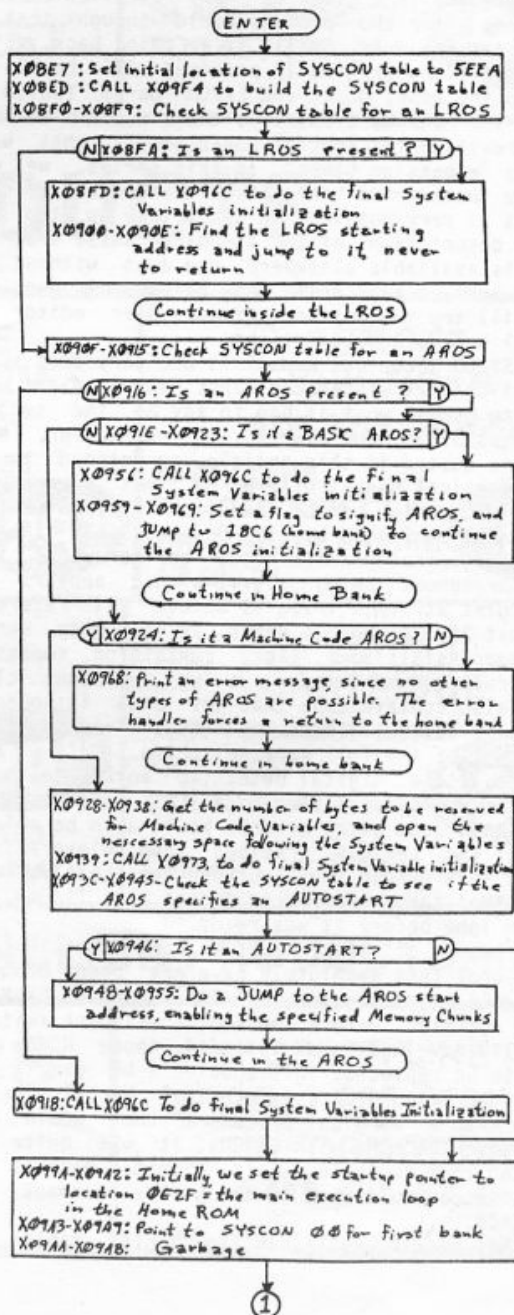 ENTER
XØ8E7: Set initial location of SYSCON table to 5EEA
XØ8ED: CALL XØ9F4 to build the SYSCON table
XØ8FØ-XØ8F9: Check SYSCON table for an LROS
N XØ8FA: Is an LROS Present? Y
XØ8FD: CALL XØ96C to do the final System
Variables initialization
XØ9ØØ-XØ9ØE: Find the LROS starting
address and jump to it, never
to return
Continue inside the LROS
XØ9ØF-XØ915: Check SYSCON table for an AROS
N XØ916: Is an AROS Present? Y
N XØ91E-XØ923: Is it a BASIC AROS? Y
XØ956: CALL XØ96C to do the final
System Variables initialization
XØ959-XØ969: Set a flag to signify AROS, and
JUMP to 18C6 (home bank) to continue
the AROS initialization
Continue in Home Bank
Y XØ924: Is it a Machine Code AROS? N
XØ968: Print an error message, since no other
types of AROS are possible. The error
handler forces a return to the home bank
Continue in home bank
XØ928-XØ938: Get the number of bytes to be reserved
for Machine Code Variables, and open the
nescessary space following the System Variables
XØ939: CALL XØ973, to do final System Variable initialization
XØ93C-XØ945-Check the SYSCON table to see if the
AROS specifies an AUTOSTART
Y XØ946: Is it an AUTOSTART? N
XØ948-XØ955: Do a JUMP to the AROS start
address, enabling the specified Memory Chunks
Continue in the AROS
XØ918: CALL XØ96C To do final System Variables Initialization
XØ99A-XØ9A2: Initially we set the startup pointer to
location ØE2F = the main execution loop
in the Home ROM
XØ9A3-XØ9A9: Point to SYSCON ØØ for first bank
XØ9AA-XØ9AB: Garbage
1